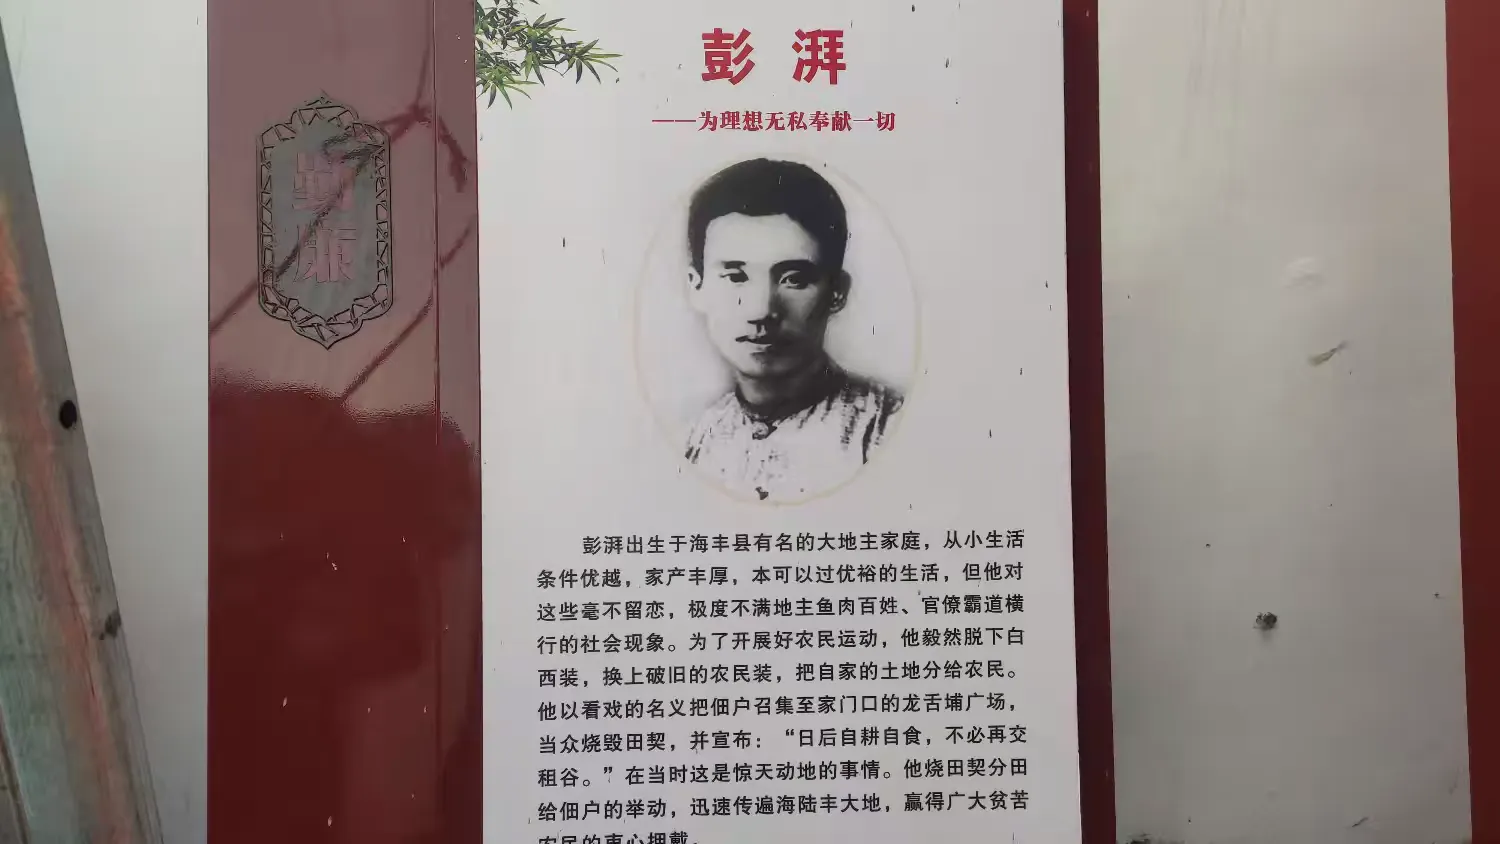 彭湃
——为理想无私奉献一切
勤廉
彭湃出生于海丰县有名的大地主家庭，从小生活
条件优越，家产丰厚，本可以过优裕的生活，但他对
这些毫不留恋，极度不满地主鱼肉百姓、官僚霸道横
行的社会现象。为了开展好农民运动，他毅然脱下白
西装，换上破旧的农民装，把自家的土地分给农民。
他以看戏的名义把佃户召集至家门口的龙舌埔广场，
当众烧毁田契，并宣布：“日后自耕自食，不必再交
租谷。”在当时这是惊天动地的事情。他烧田契分田
给佃户的举动，迅速传遍海陆丰大地，赢得广大贫苦
农民的衷心拥戴。